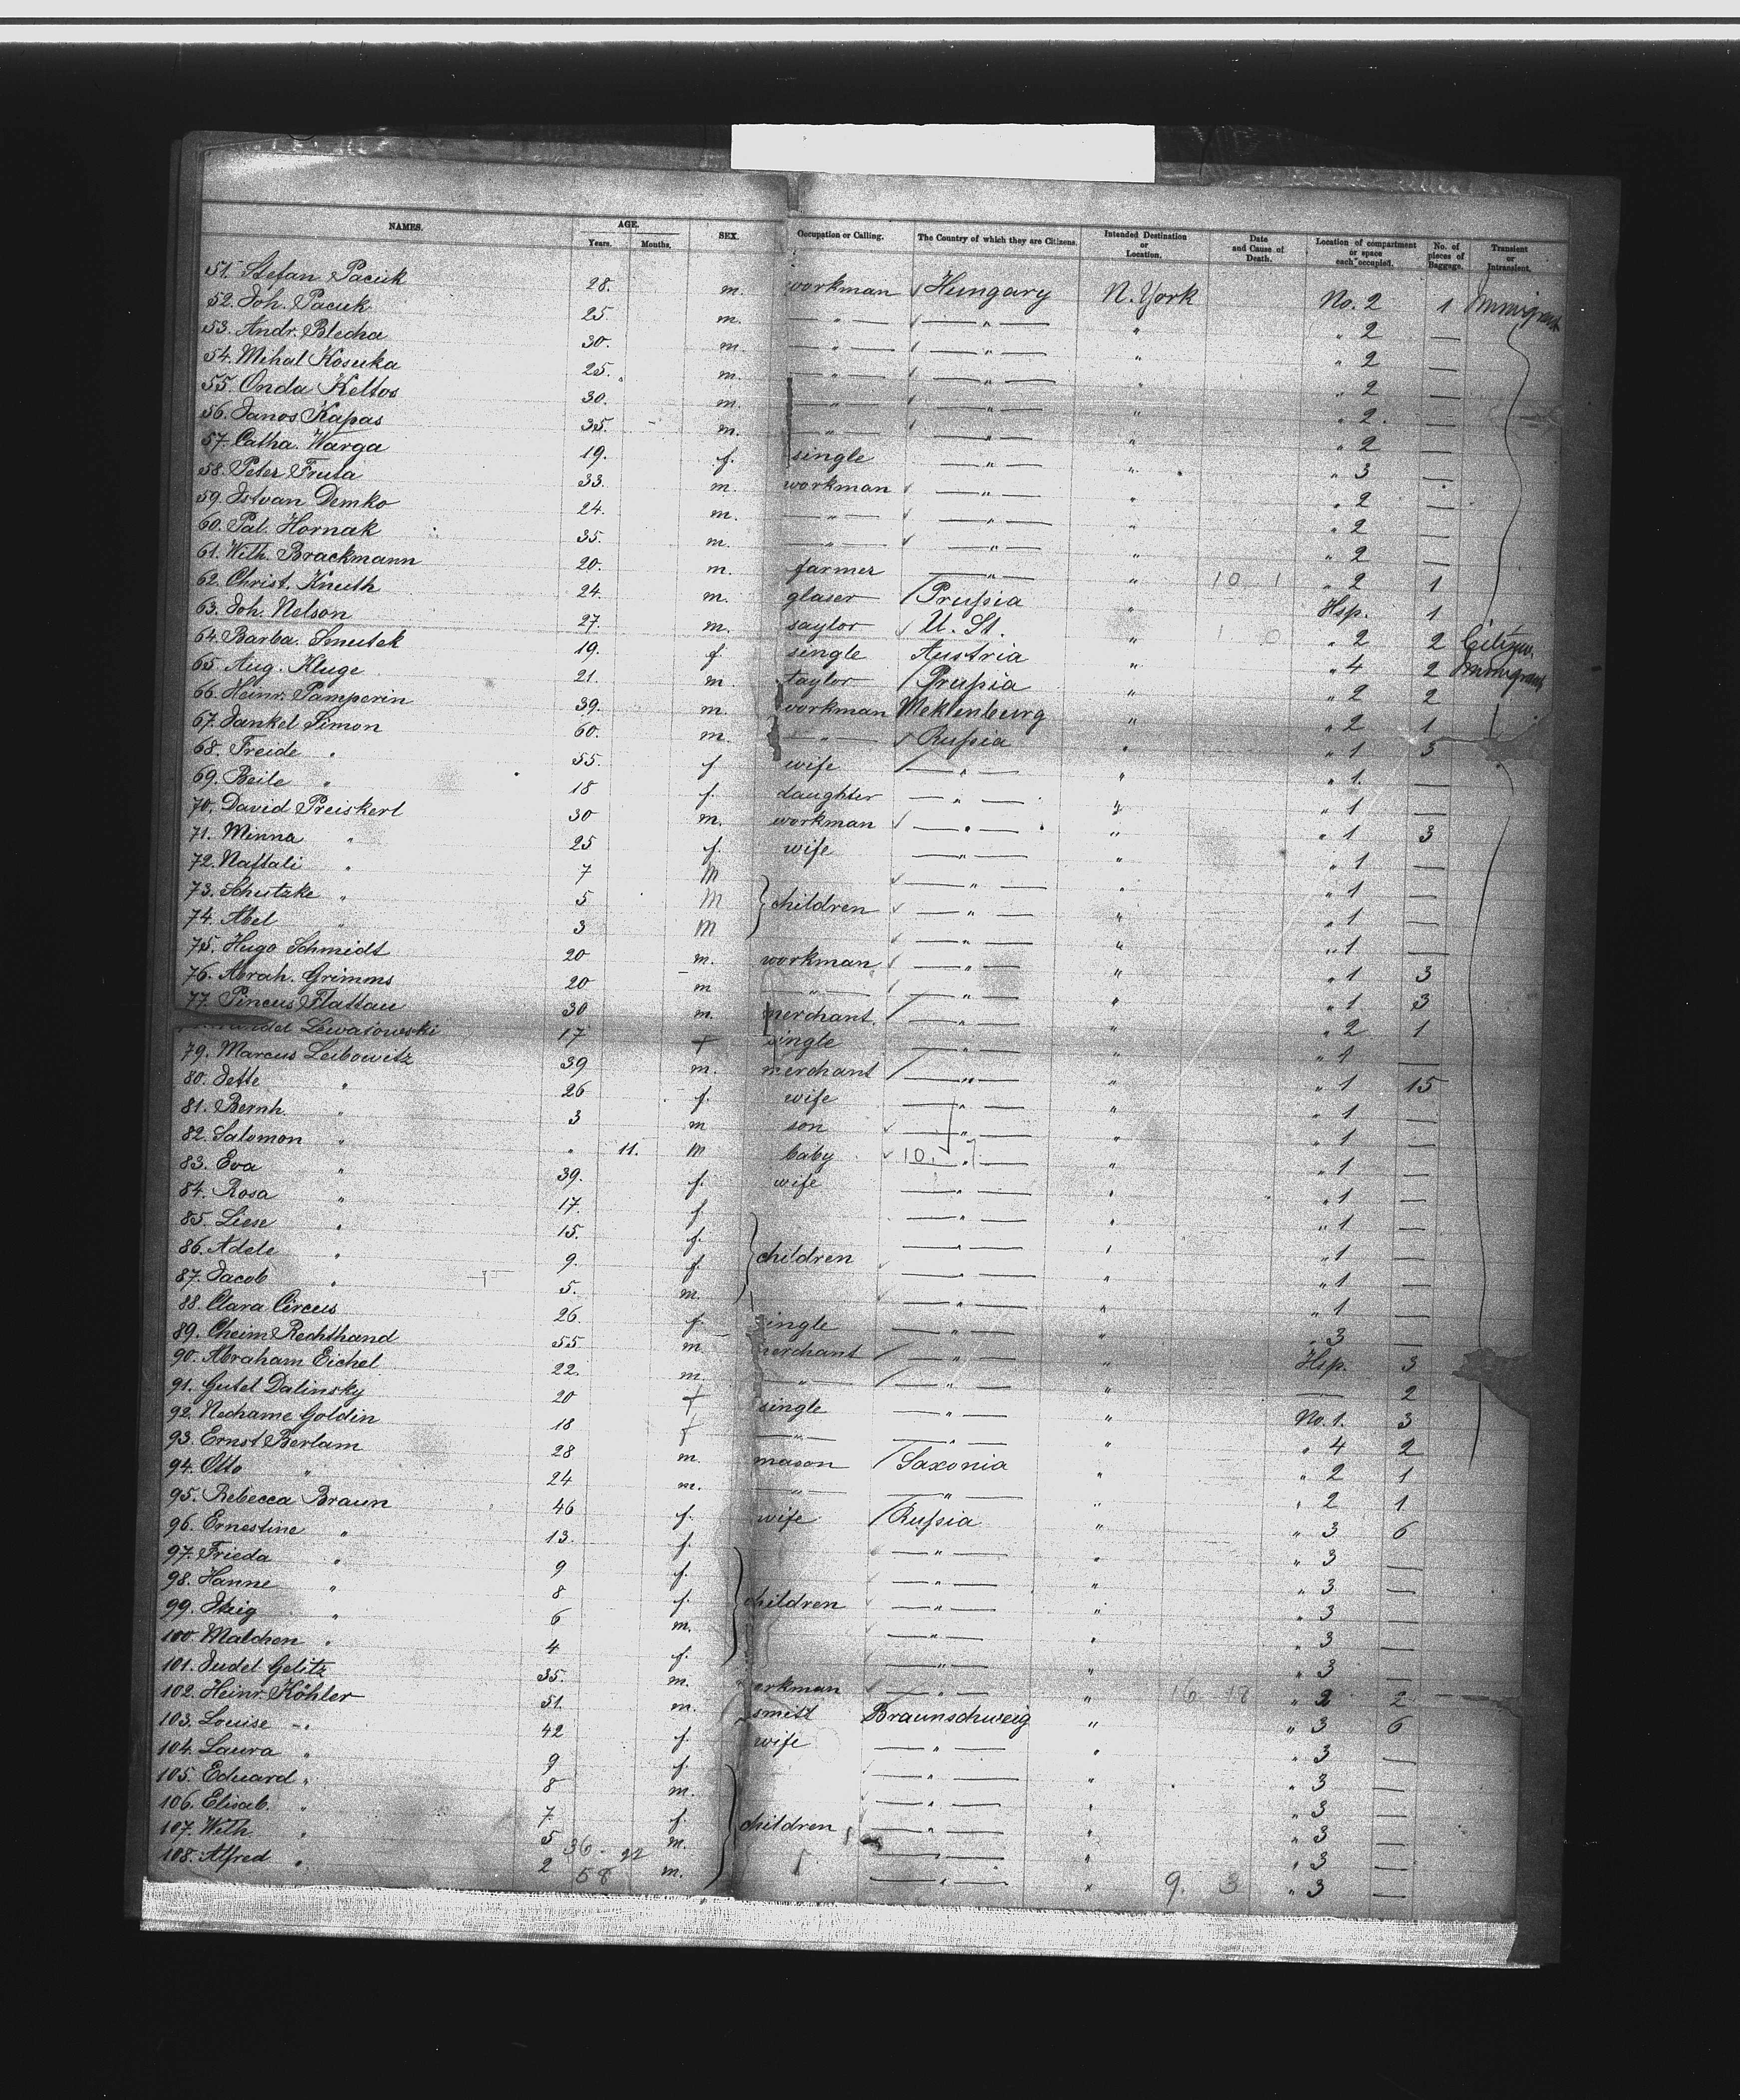 NAMES. AGE. Years. Months. SEX. Occupation or Calling. The Country of which they are Citizens. Intended Destination or Location. Date and Cause of Death. Location of compartment or space each occupied. No. of pieces of Baggage. Transient or Intransient.
51. Stefan Pacuk 28. m. workman Hungary N. York No. 2 1 Immigrant
52. Joh. Pacuk 25 m. — " — — " — " " 2 —
53. Andr. Blecha 30. m. — " — — " — " " 2 —
54. Mihal Kosuka 25. m. — " — — " — " " 2 —
55. Onda Keltos 30. m. — " — — " — " " 2. —
56. Janos Kapas 35. m. — " — — " — " " 2 —
57. Catha. Warga 19. f. single — " — " " 3 —
58. Peter Fruta 33. m. workman — " — " " 2 —
59. Istvan Demko 24. m. — " — — " — " " 2 —
60. Pal. Hornak 35. m. — " — — " — " " 2 —
61. Wilh. Brackmann 20. m. farmer — " — " 10 1 " 2 1
62. Christ. Knuth 24. m. glaser Prussia " Hsp. 1
63. Joh. Nelson 27. m. saylor U. St. " " 2 2 Citizen.
64. Barba. Smutek 19. f. single Austria " " 4 2 Immigrant
65. Aug. Kluge 21. m taylor Prussia " " 2 2
66. Heinr. Pamperin 39. m. workman Meklenburg " " 2 1
67. Jankel Simon 60. m. — " — Russia " " 1 3
68. Freide " 55. f wife — " — " " 1. —
69. Beile " 18 f. daughter — " — " " 1 —
70. David Preiskerl 30 m. workman — " — " " 1 3
71. Minna " 25 f. wife — " — " " 1 —
72. Naftali " 7 M — " — " " 1 —
73. Schutzke " 5 M children — " — " " 1 —
74. Abel " 3 M — " — " " 1 —
75. Hugo Schmidt 20 m. workman — " — " " 1 3
76. Abrah. Grimms 20 m — " — — " — " " 1 3
77. Pincus Flattau 30 m. merchant. — " — " " 2 1
Lewatowski 17 f single — " — " " 1 —
79. Marcus Leibowitz 39 m. merchant — " — " " 1 15
80. Jette " 26 f. wife — " — " " 1 —
81. Bernh. " 3 m son — " — " " 1 —
82. Salomon " " 11. M baby 10. — " — " " 1 —
83. Eva " 39. f. wife — " — " " 1 —
84. Rosa " 17. f — " — " " 1 —
85. Liese " 15. f. — " — " " 1 —
86. Adele " 9. f children — " — " " 1 —
87. Jacob " 5. m. — " — " " 1 —
88. Clara Circus 26. f. single — " — " " 3 —
89. Cheim Rechthand 55 m. merchant — " — " Hsp. 3
90. Abraham Eichel 22. m. — " — — " — " — 2
91. Gutel Dalinsky 20 f single — " — " No. 1. 3
92. Nechame Goldin 18 f — " — — " — " " 4 2
93. Ernst Berlam 28 m. mason Saxonia " " 2 1
94. Otto " 24 m. — " — — " — " " 2 1
95. Rebecca Braun 46 f. wife Russia " " 3 6
96. Ernestine " 13. f. — " — " " 3 —
97. Frieda " 9 f. — " — " " 3 —
98. Hanne " 8 f. children — " — " " 3 —
99. Itzig " 6 m. — " — " " 3 —
100. Malchen " 4 f. — " — " " 3 —
101. Judel Gelitz 35. m. workman — " — " 16 18 " 2 2
102. Heinr. Köhler 51. m. smitt Braunschweig " " 3 6
103. Louise " 42 f. wife — " — " " 3 —
104. Laura " 9 f. — " — " " 3 —
105. Eduard " 8 m. — " — " " 3 —
106. Elisab. " 7. f. children — " — " " 3 —
107. Wilh. " 5 m. — " — " " 3 —
108. Alfred " 2 m. — " — " 9. 3 " 3 —
36. 22
58